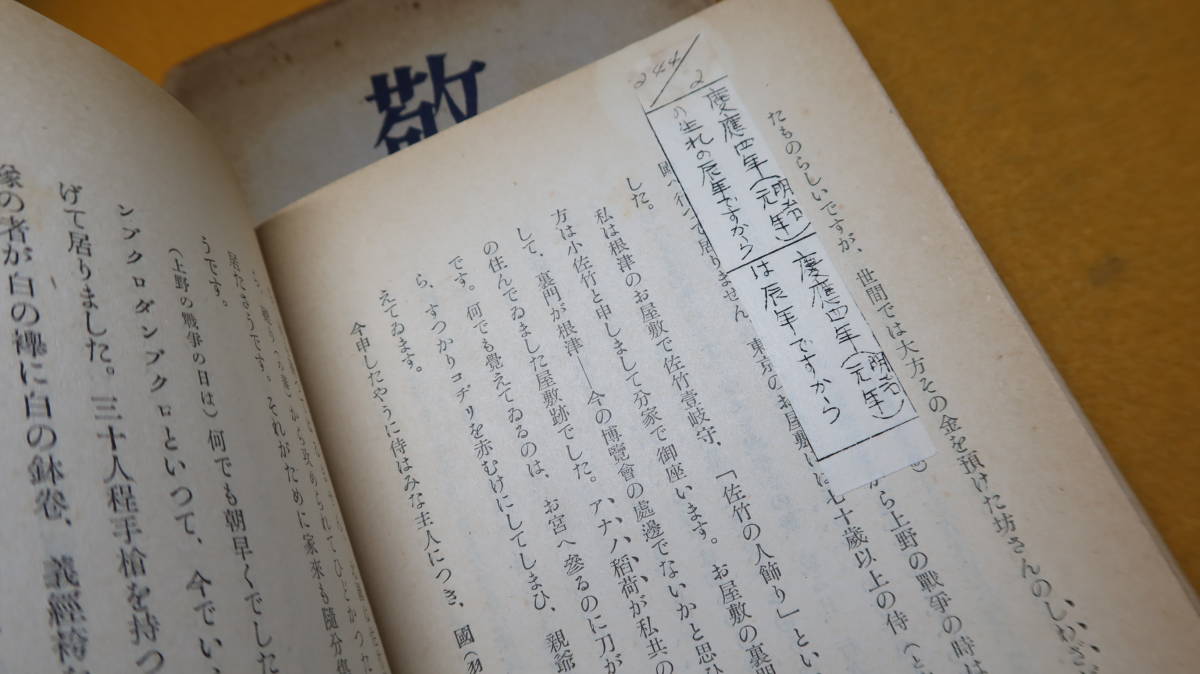 敬
244/2
慶應四年(明治元年)
の生れの辰年ですから
慶應四年(明治元年)
は辰年ですから
たものらしいですが、世間では大方その金を預けた坊さんのしわざ
から上野の戰爭の時は
國へ行つて居りません、東京のお屋敷には七十歳以上の侍
した。
私は根津のお屋敷で佐竹壹岐守、「佐竹の人飾り」とい
方は小佐竹と申しまして分家で御座います。お屋敷の裏門
して、裏門が根津――今の博覽會の處邊でないかと思ひ
の住んでゐました屋敷跡でした。アナハ稻荷が私共の
です。何でも覺えてゐるのは、お宮へ參るのに刀が
ら、すつかりコヂリを赤むけにしてしまひ、親爺
えてゐます。
今申したやうに侍はみな主人につき、國(羽
から改められてひとかつた
居たさうです。それがために家來も隨分
うです。
(上野の戰爭の日は)何でも朝早くでした
ンブクロダンブクロといつて、今でい、
げて居りました。三十人程手槍を持つ
の者が白の襷に白の鉢卷、義經袴